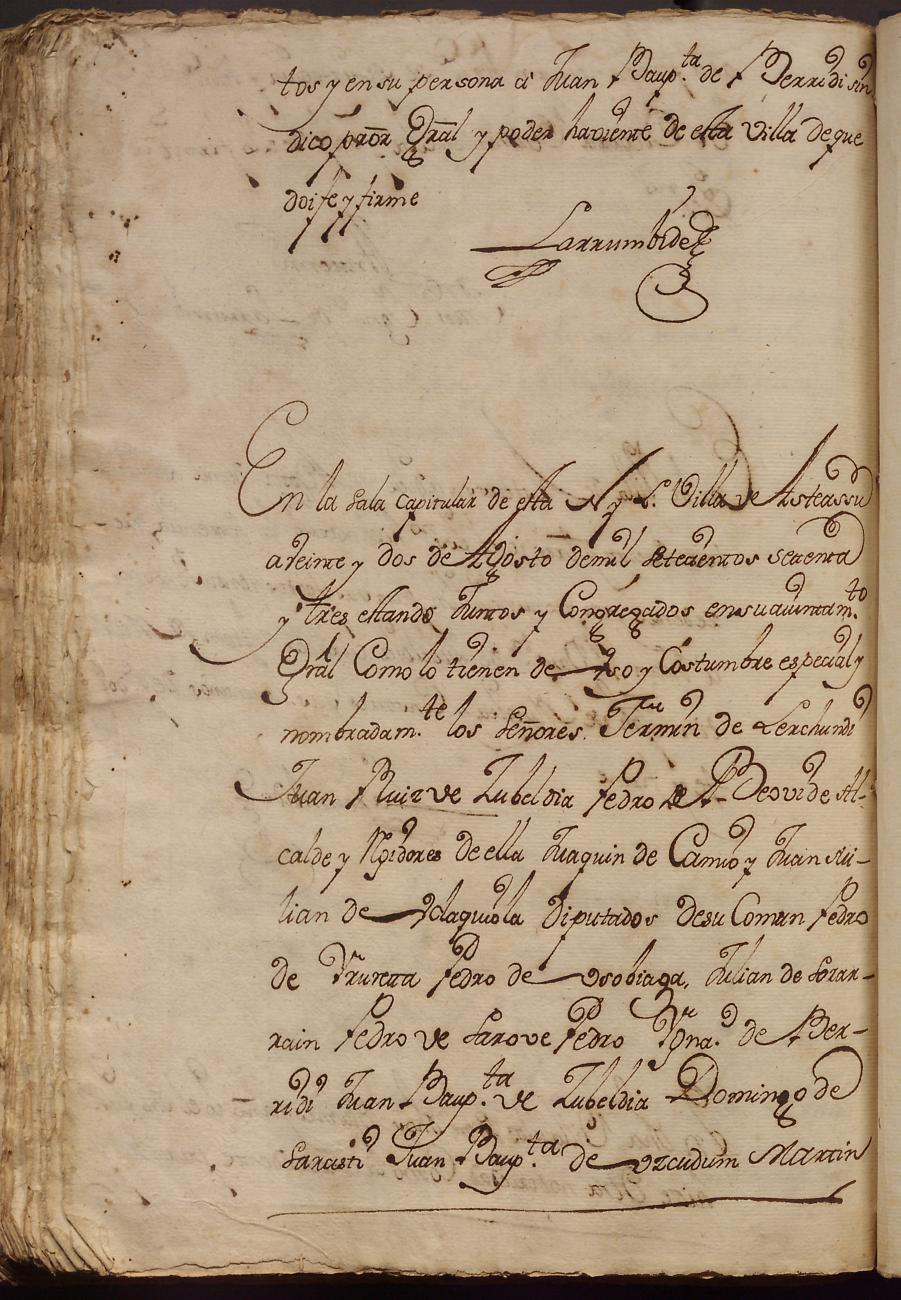 tos y en su persona a Juan Baup.ta de Berridi sin
dico pror Gral y poder haviente de esta Villa de que
doi fe y firme
Larrumbide
En la sala capitular de esta N. y L. Villa de Asteassu
a veinte y dos de Agosto de mil setecientos setenta
y tres estando Juntos y Congregados en su aiuntam.to
Gral Como lo tienen de Uso y Costumbre especial y
nombradam.te los señores. Fermin de Lerchundi
Juan Ruiz de Zubeldia Pedro de Beovide Al-
calde y Rgidores de ella Juaquin de Camio y Juan Ju-
lian de Olaquiola Diputados de su Comun Pedro
de Yrureta Pedro de Usobiaga, Julian de Sorar-
rain Pedro de Sarove Pedro Ygna.o de Ber-
ridi Juan Baup.ta de Zubeldia Domingo de
Sarasti Juan Baup.ta de Uzcudum Martin